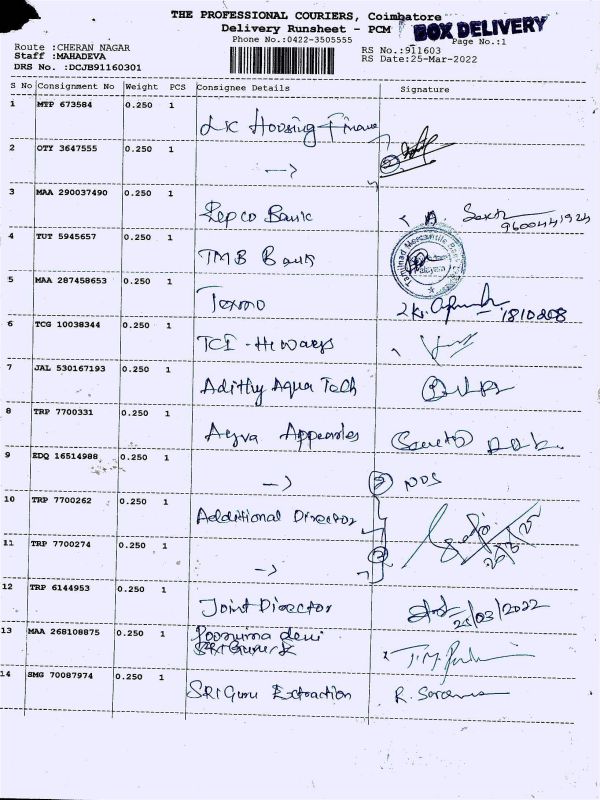 THE PROFESSIONAL COURIERS, Coimbatore
Delivery Runsheet - PCM
BOX DELIVERY
Phone No.:0422-3505555
Page No.:1
Route :CHERAN NAGAR
RS No.:911603
Staff :MAHADEVA
RS Date:25-Mar-2022
DRS No. :DCJB91160301
S No Consignment No Weight PCS Consignee Details Signature
1 MTP 673584 0.250 1 LIC Housing Finance
2 OTY 3647555 0.250 1 →
3 MAA 290037490 0.250 1 Repco Bank
4 TUT 5945657 0.250 1 TMB Bank
Tamilnad Mercantile Bank
5 MAA 287458653 0.250 1 Texmo
6 TCG 10038344 0.250 1 TCI - Hiways
7 JAL 530167193 0.250 1 Adithy Aqua Tech
8 TRP 7700331 0.250 1
9 EDQ 16514988 0.250 1 → 2 NOS
10 TRP 7700262 0.250 1 Additional Director
11 TRP 7700274 0.250 1 →
12 TRP 6144953 0.250 1 Joint Director 25/03/2022
13 MAA 268108875 0.250 1 Poornima devi
14 SMG 70087974 0.250 1 SRI Guru Extraction